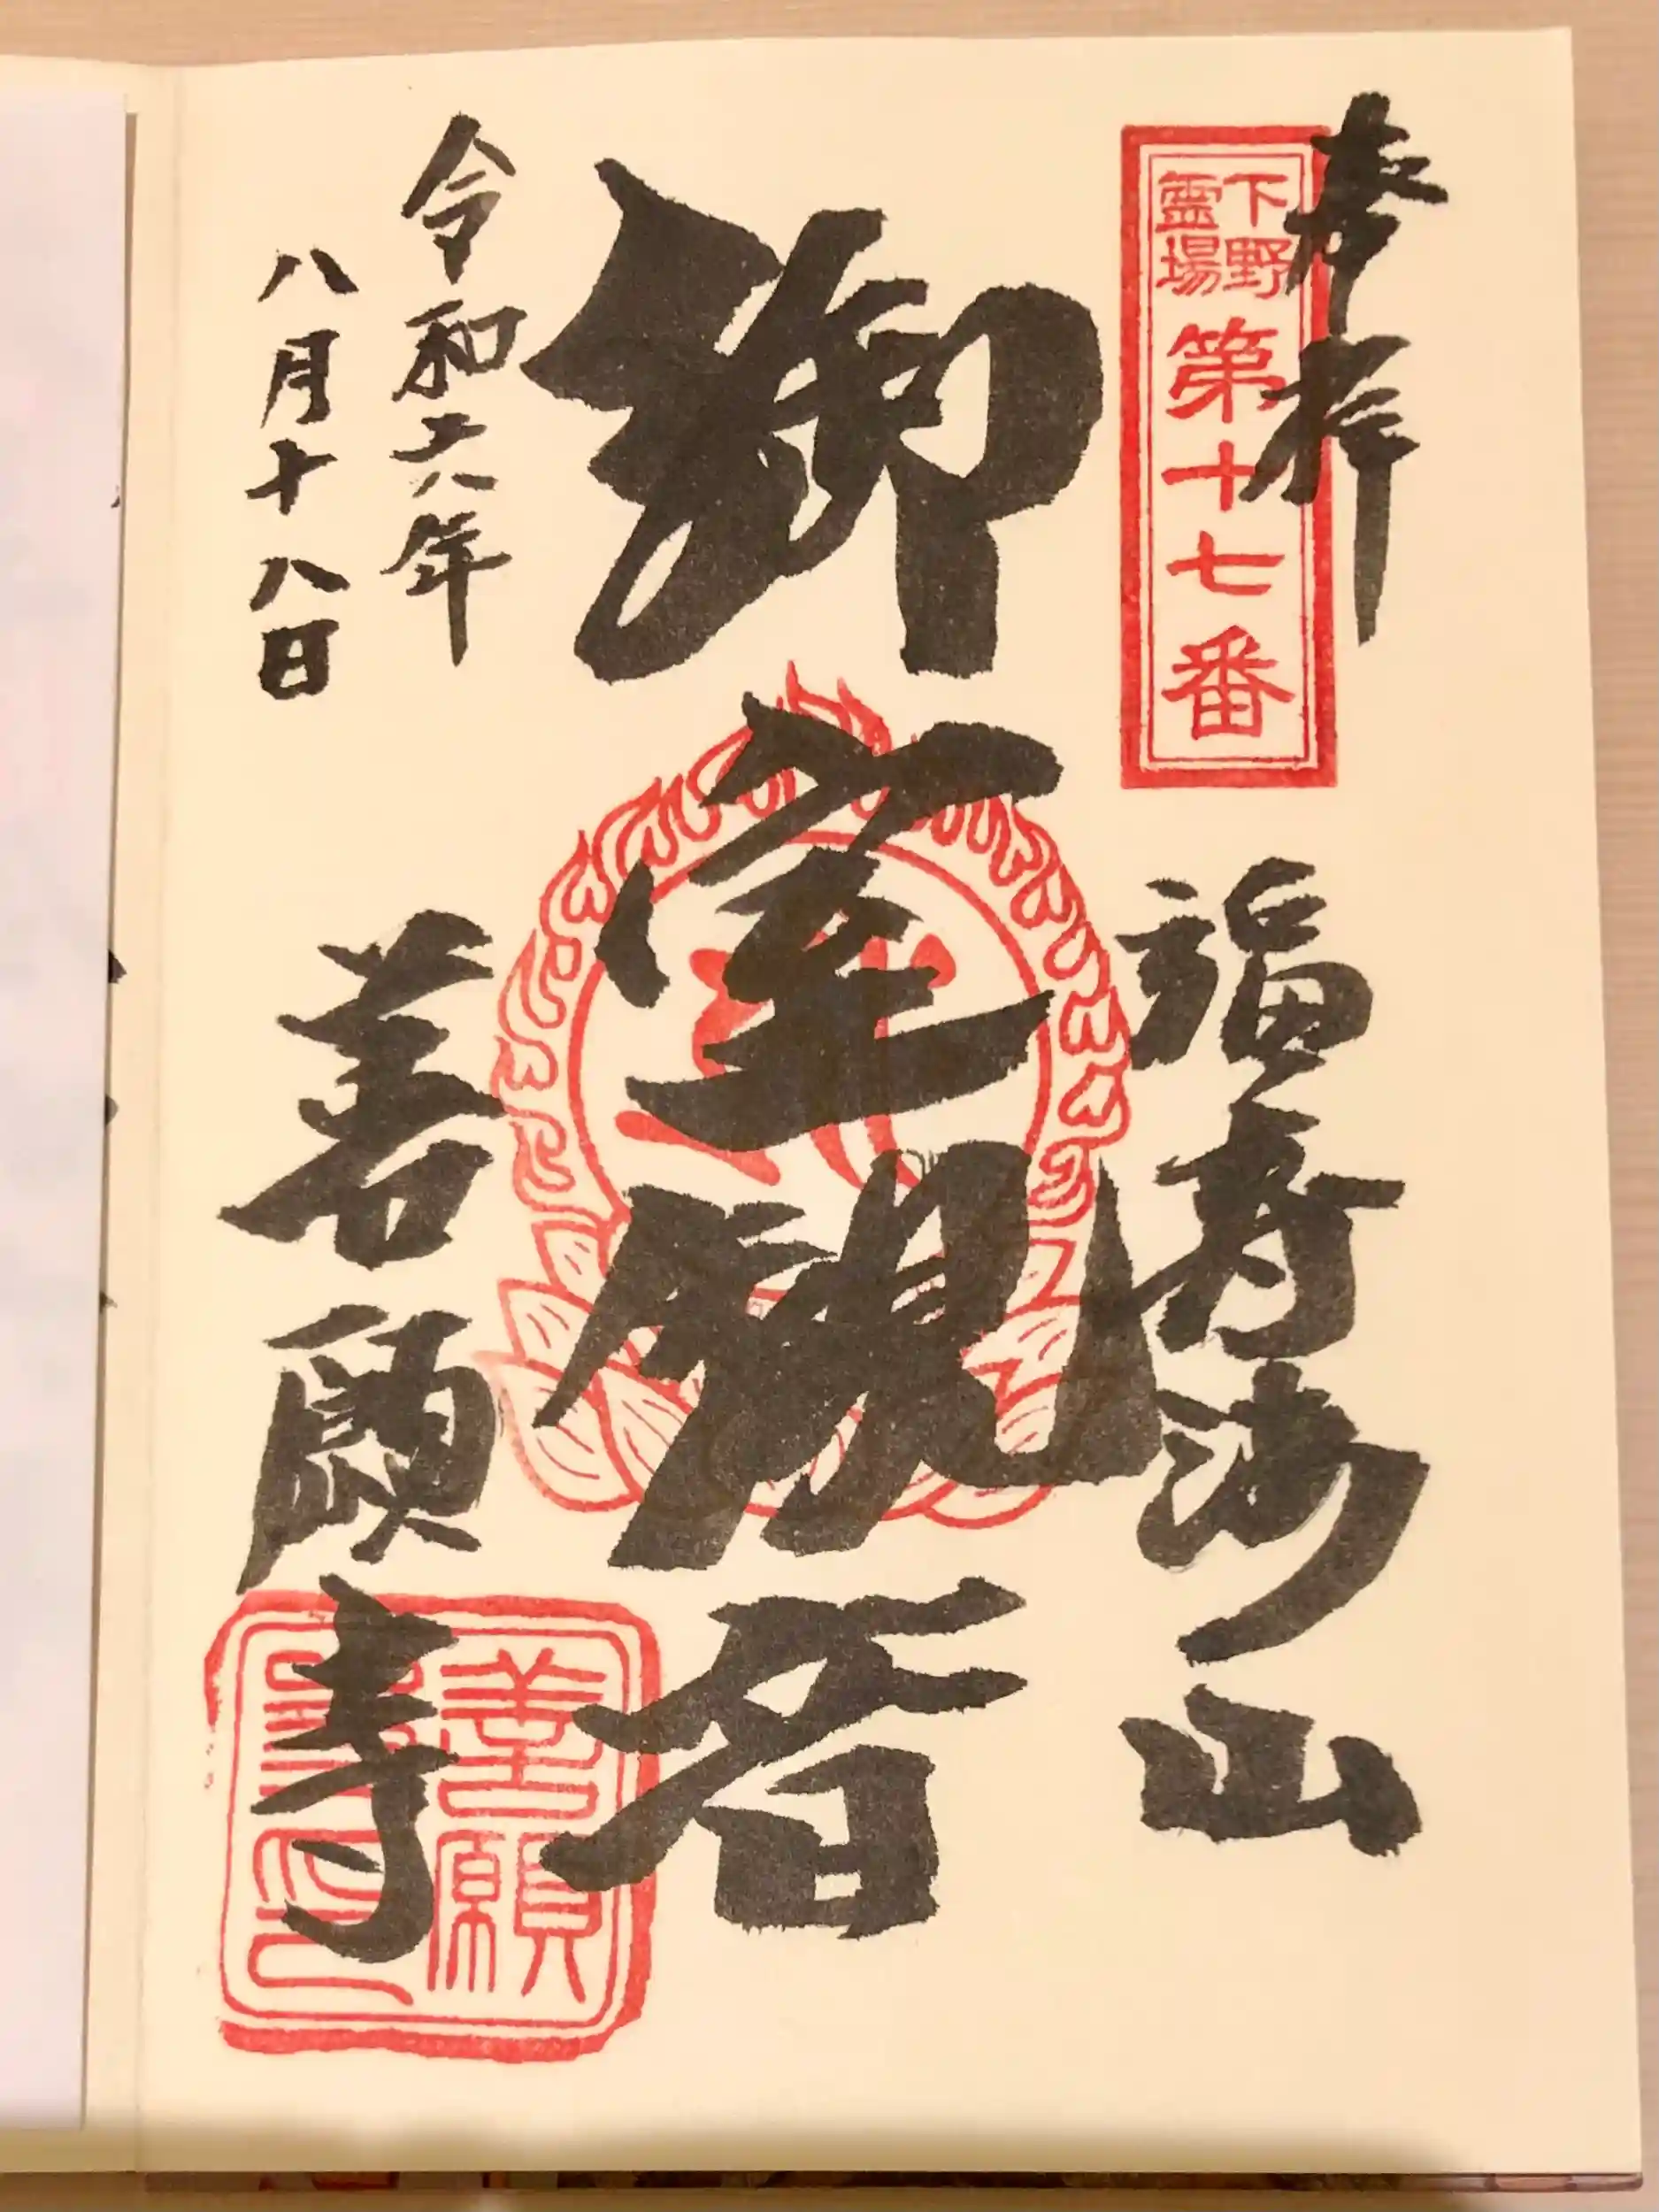 奉拝
下野
霊場
第十七番
福寿海山
御室観音
令和六年
八月十八日
善願寺
善願
寺印